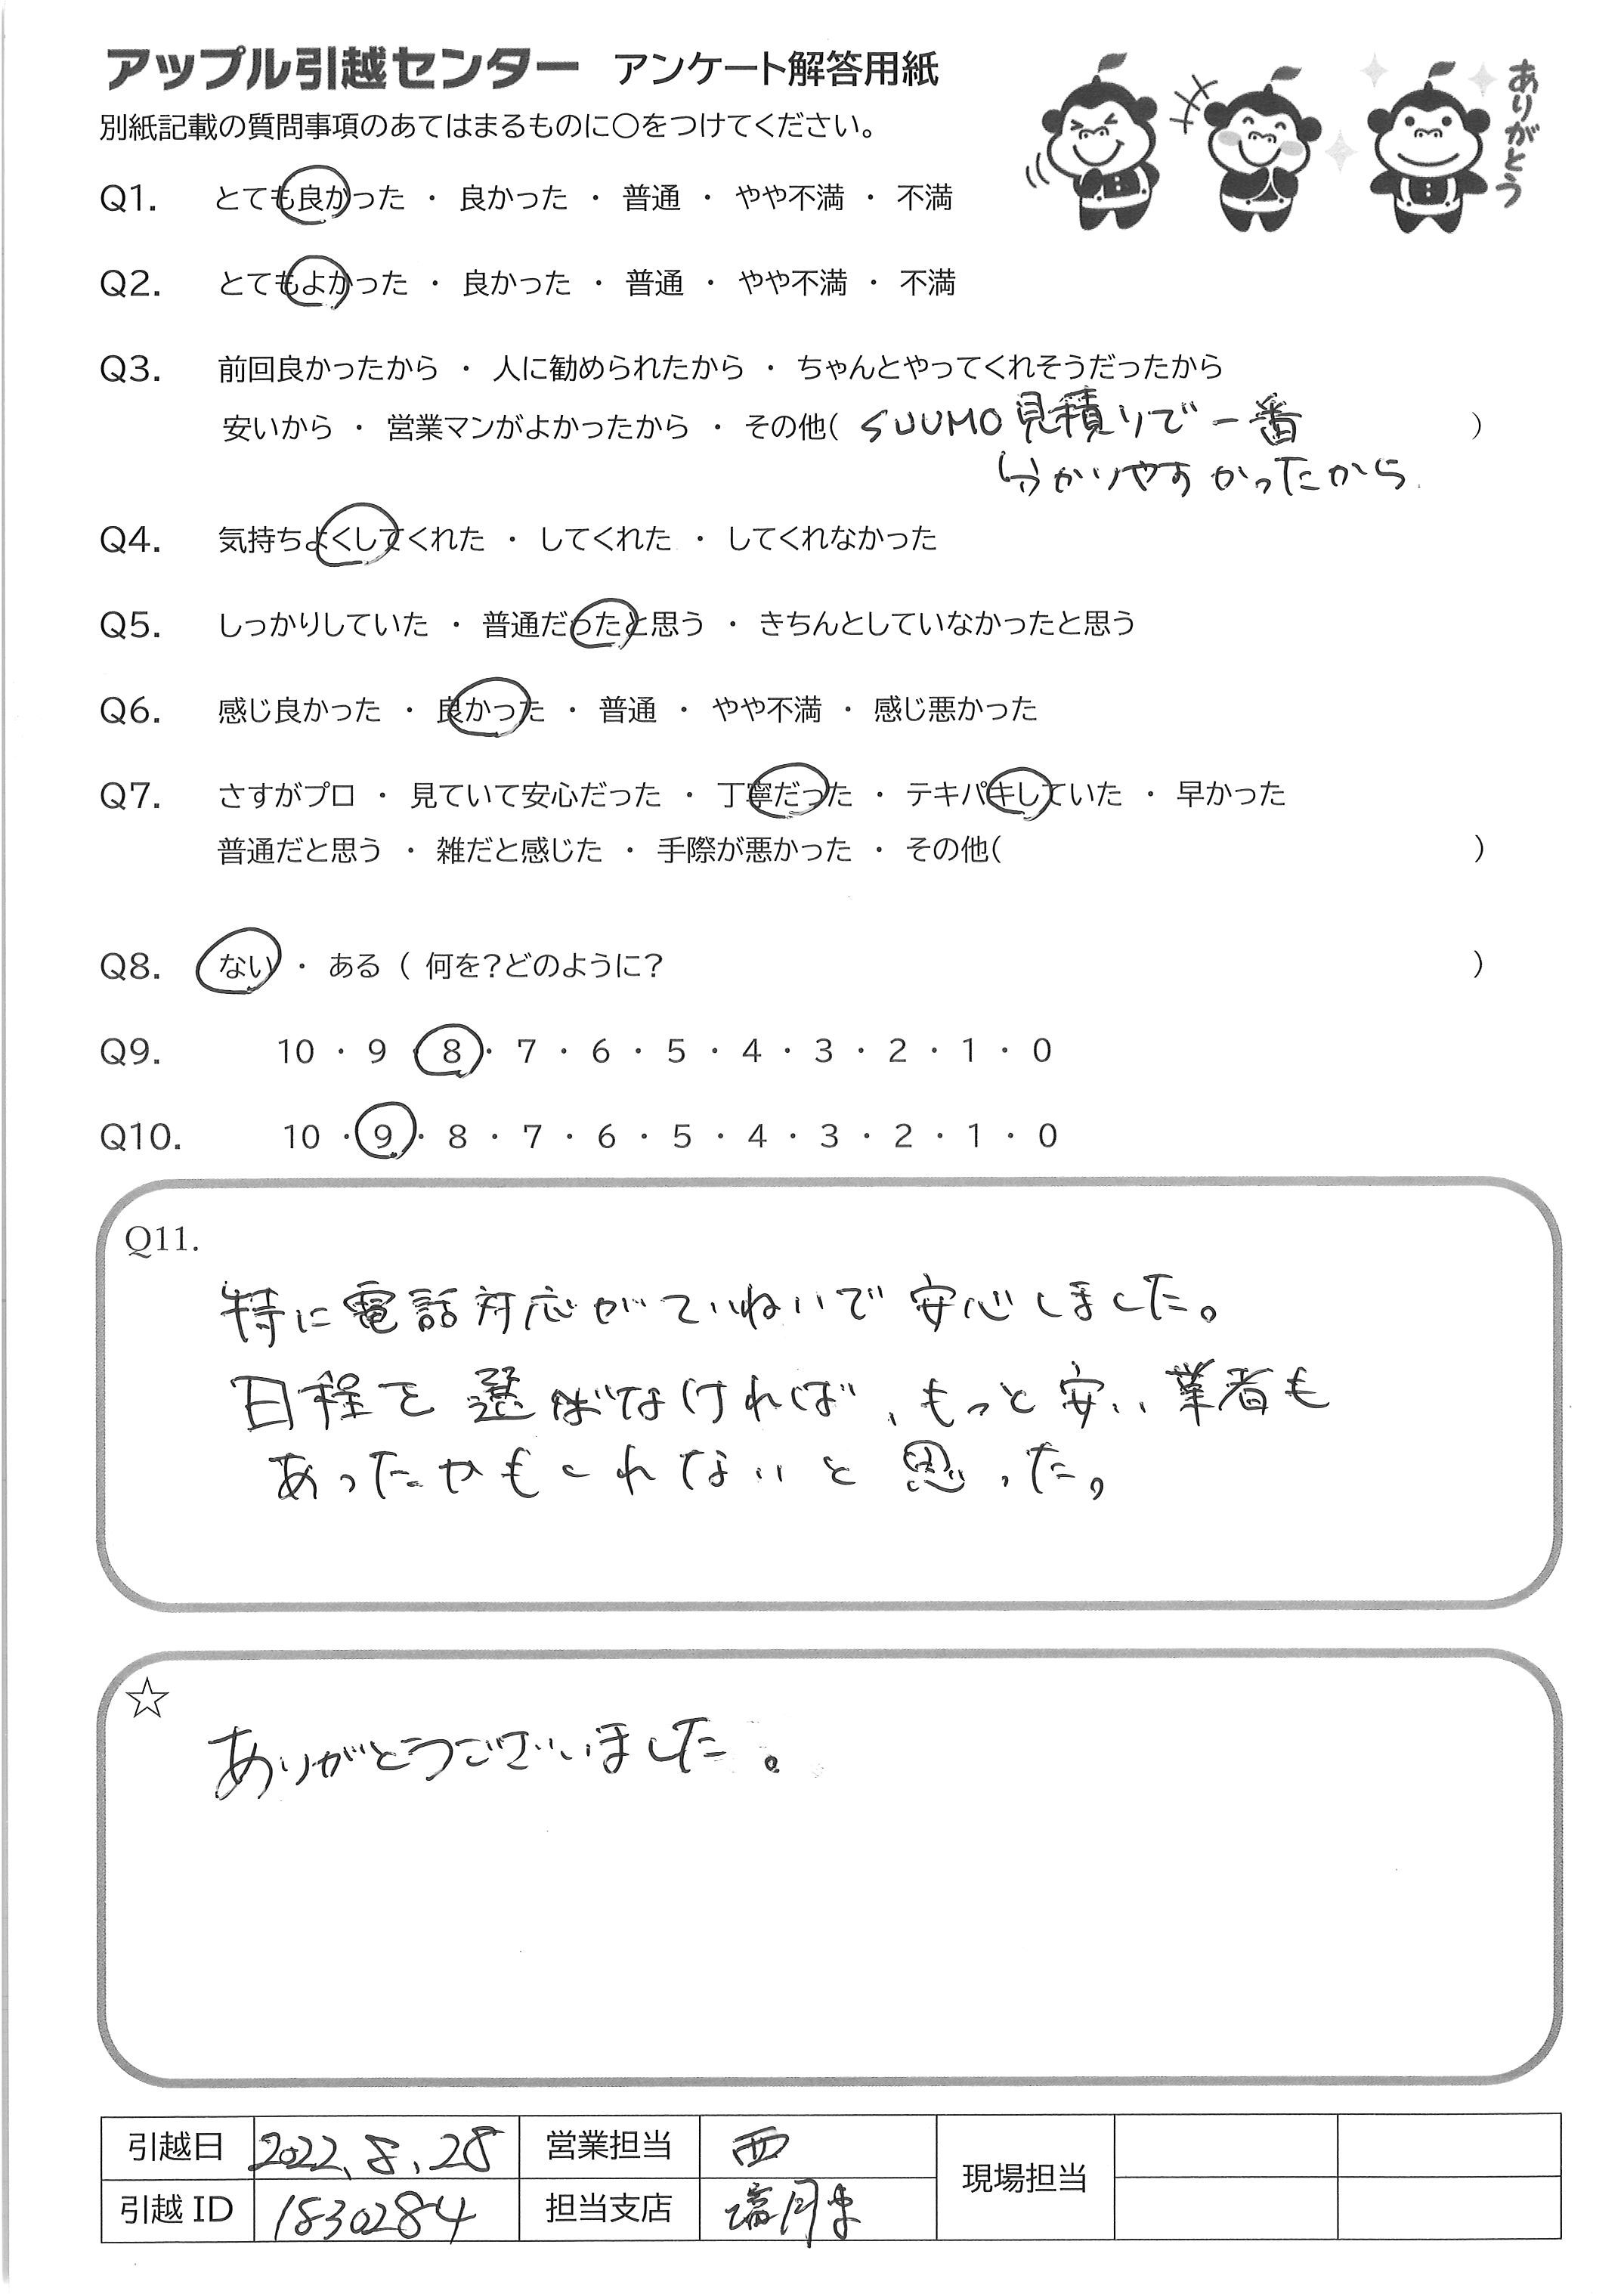 アップル引越センター アンケート解答用紙
ありがとう
別紙記載の質問事項のあてはまるものに〇をつけてください。
Q1. とても良かった ・ 良かった ・ 普通 ・ やや不満 ・ 不満
Q2. とてもよかった ・ 良かった ・ 普通 ・ やや不満 ・ 不満
Q3. 前回良かったから ・ 人に勧められたから ・ ちゃんとやってくれそうだったから
安いから ・ 営業マンがよかったから ・ その他( SUUMO見積りで一番 )
分かりやすかったから
Q4. 気持ちよくしてくれた ・ してくれた ・ してくれなかった
Q5. しっかりしていた ・ 普通だったと思う ・ きちんとしていなかったと思う
Q6. 感じ良かった ・ 良かった ・ 普通 ・ やや不満 ・ 感じ悪かった
Q7. さすがプロ ・ 見ていて安心だった ・ 丁寧だった ・ テキパキしていた ・ 早かった
普通だと思う ・ 雑だと感じた ・ 手際が悪かった ・ その他( )
Q8. ない ・ ある ( 何を?どのように? )
Q9. 10 ・ 9 ・ 8 ・ 7 ・ 6 ・ 5 ・ 4 ・ 3 ・ 2 ・ 1 ・ 0
Q10. 10 ・ 9 ・ 8 ・ 7 ・ 6 ・ 5 ・ 4 ・ 3 ・ 2 ・ 1 ・ 0
Q11.
特に電話対応がていねいで安心しました。
日程を選ばなければ、もっと安い業者も
あったかもしれないと思った。
☆
ありがとうございました。
引越日 2022.8.28 営業担当 西 現場担当
引越ID 1830284 担当支店